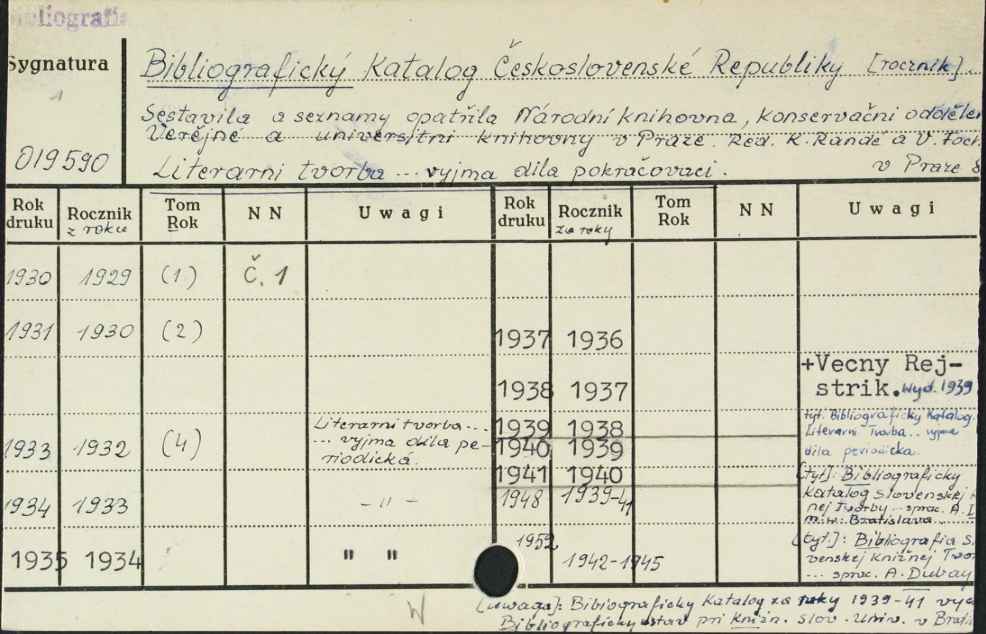 Bibliografia
Sygnatura
1
019590
Bibliografický Katalog Československé Republiky [rocznik]...
Sestavila a seznamy opatřila Národní knihovna, konservační oddělen
Veřejné a universitní knihovny v Praze. Red. K. Randé a V.
Literarni tvorba ... vyjma dila pokračovaci. v Praze 8
Rok druku Rocznik z roku Tom Rok N N Uwagi Rok druku Rocznik za roky Tom Rok N N Uwagi
1930 1929 (1) Č. 1
1931 1930 (2) 1937 1936
1938 1937 +Vecny Rej-
strik. wyd. 1939
1933 1932 (4) Literarni tvorba...
... vyjma dila pe-
riodická.
1939 1938 tyt: Bibliograficky Katalog.
Literarni Tvorba... vyjma
dila periodicka.
1940 1939
1941 1940 [tyt]: Bibliograficky
1934 1933 -"- 1948 1939-41 Katalog slovenskej
nej Tvorby ... sprac. A.
Bratislava...
1952 [tyt.]: Bibliografia s.
1935 1934 " " 1942-1945 venskej knižnej Tvor
... sprac. A. Dubay
W
[uwaga]: Bibiograficky Katalog za roky 1939-41 vyd
Bibliograficky ustav pri knižn. slov. Univ. v Brati